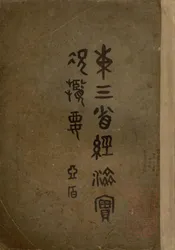 東三省經濟實
況攬要
亞伯